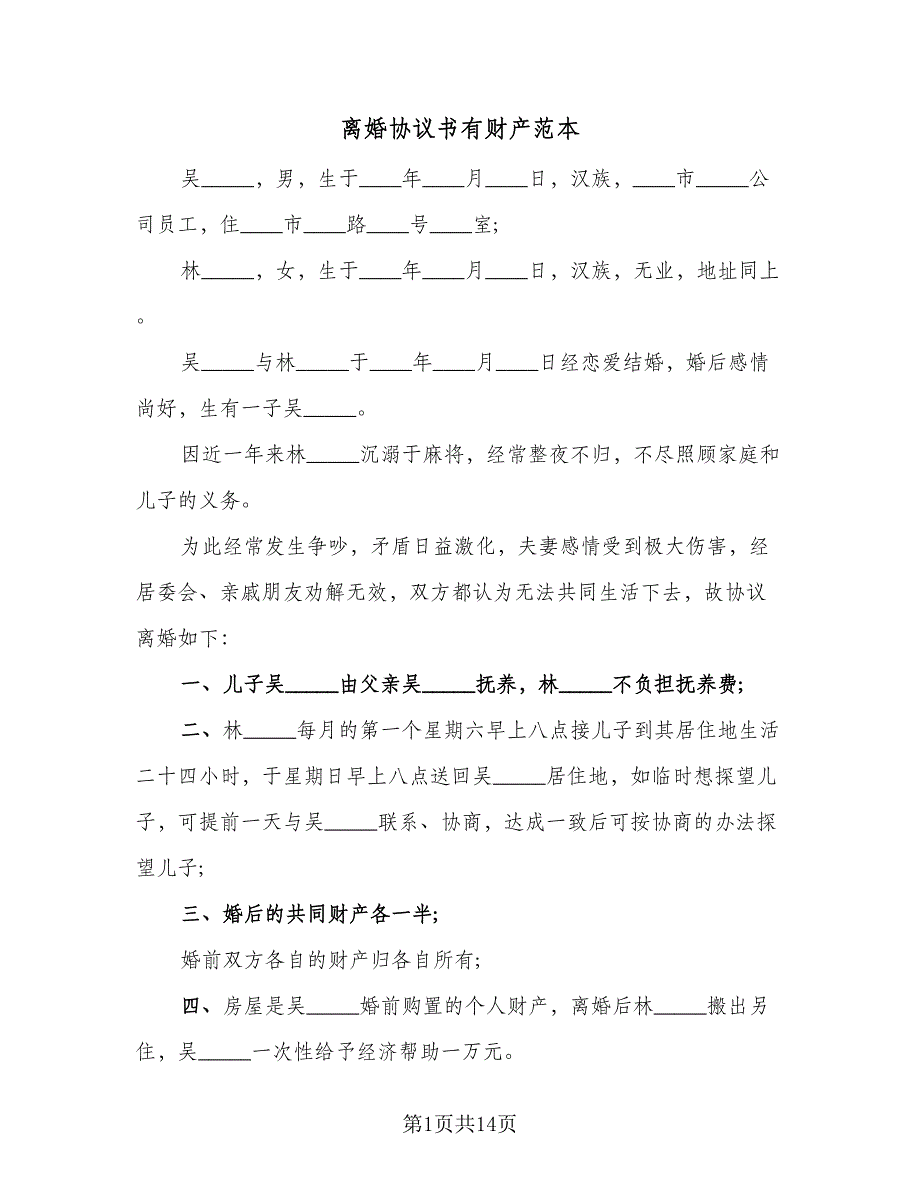 离婚协议书有财产范本
吴_____，男，生于____年____月____日，汉族，____市_____公
司员工，住____市____路____号____室;
林_____，女，生于____年____月____日，汉族，无业，地址同上
。
吴_____与林_____于____年____月____日经恋爱结婚，婚后感情
尚好，生有一子吴_____。
因近一年来林_____沉溺于麻将，经常整夜不归，不尽照顾家庭和
儿子的义务。
为此经常发生争吵，矛盾日益激化，夫妻感情受到极大伤害，经
居委会、亲戚朋友劝解无效，双方都认为无法共同生活下去，故协议
离婚如下：
一、儿子吴_____由父亲吴_____抚养，林_____不负担抚养费;
二、林_____每月的第一个星期六早上八点接儿子到其居住地生活
二十四小时，于星期日早上八点送回吴_____居住地，如临时想探望儿
子，可提前一天与吴_____联系、协商，达成一致后可按协商的办法探
望儿子;
三、婚后的共同财产各一半;
婚前双方各自的财产归各自所有;
四、房屋是吴_____婚前购置的个人财产，离婚后林_____搬出另
住，吴_____一次性给予经济帮助一万元。
第1页共14页